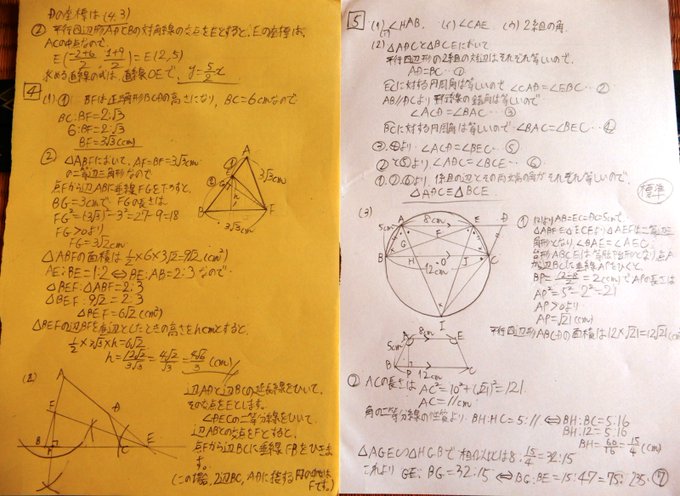 Dの座標は(4,3)
② 平行四辺形ABCDの対角線の交点をEとすると、Eの座標は、
ACの中点なので
E(-2+6/2, 1+9/2) = E(2,5)
求める直線の式は、直線OEで、y=5/2x
4
(1) ① BFは正三角形BCDの高さになり、BC=6cmなので
BC:BF=2:√3
6:BF=2:√3
BF=3√3(cm)
② △ABFにおいて、AF=BF=3√3cm
の二等辺三角形なので
点Fから辺ABに垂線FGを下ろすと、
BG=3cmで FGの長さは
FG²=(3√3)²-3²=27-9=18
FG>0より
FG=3√2cm
△ABFの面積は 1/2×6×3√2=9√2(cm²)
AE:BE=1:2⇔BE:AB=2:3なので
△BEF:△ABF=2:3
△BEF:9√2=2:3
△BEF=6√2(cm²)
△BEFの辺BFを底辺としたときの高さをhcmとすると、
1/2×3√3×h=6√2
h=12√2/3√3=4√2/√3=4√6/3(cm)
(2)
辺ADと辺BCの延長線をひいて、
その交点をEとします。
∠DECの二等分線をひいて、
辺ABとの交点をFとすると、
点Fから辺BCに垂線FBをひきます。
(この場合、2辺BC、ADに接する円の中心は
Fです。)
5
(1) (ア) ∠HAB (イ) ∠CAE (ウ) 2組の角
(2) △ABCと△BCEにおいて
平行四辺形の2組の対辺はそれぞれ等しいので、
AD=BC ①
ECに対する円周角は等しいので、∠CAD=∠EBC…②
AB//DCより平行線の錯角は等しいので
∠ACD=∠BAC…③
BCに対する円周角は等しいので ∠BAC=∠BEC…④
③、④より ∠ACD=∠BEC…⑤
②と⑤より ∠ADC=∠BCE…⑥
①、②、⑥より、1組の辺とその両端の角がそれぞれ等しいので、
△ADC≡△BCE
標準
(3)
① (2)よりAB=EC=DC=5cmで
角形となり、∠BAE=∠AEC
台形ABCEは等脚台形となり点A
から辺BCに垂線APをひくと、
BP=12-8/2=2(cm)でAPの長さは
AP²=5²-2²=21
AP>0より
AP=√21(cm)
平行四辺形ABCDの面積は12×√21=12√21(cm²)
② ACの長さは AC²=10²+(√21)²=121
AC=11cm
角の二等分線の性質より、BH:HC=5:11⇔BH:BC=5:16
BH:12=5:16
BH=60/16=15/4(cm)
△AGEと△HGBで相似比は8:15/4=32:15
これより GE:BG=32:15⇔BG:BE=15:47=75:235…㋐